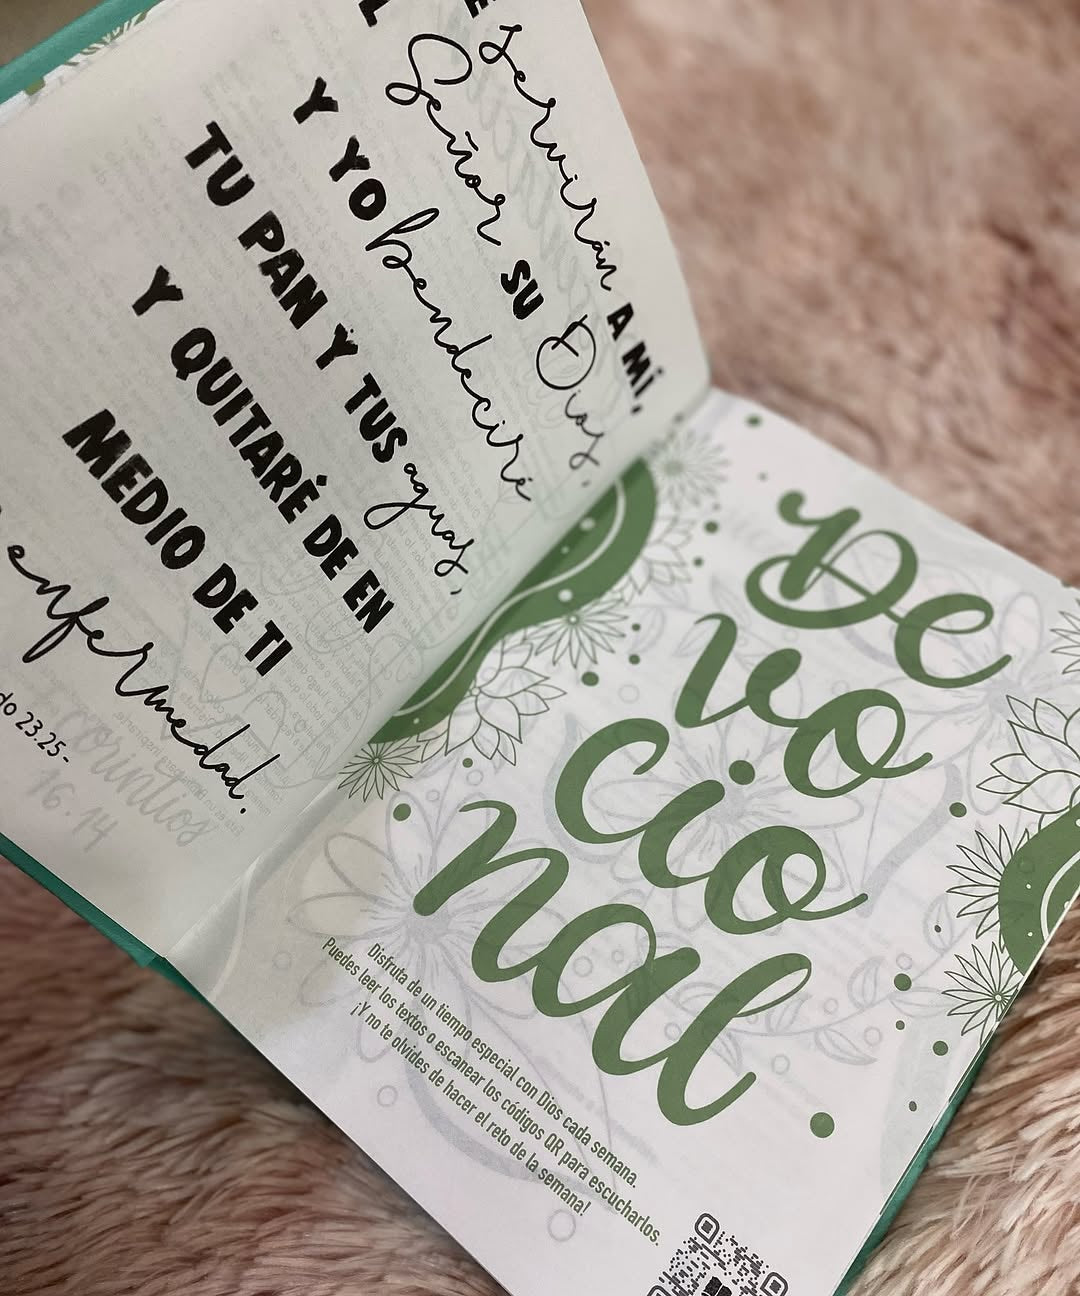 servirán A MÍ,
Señor SU Dios,
Y YO bendeciré
TU PAN Y TUS aguas,
Y QUITARÉ DE EN
MEDIO DE TI
enfermedad.
do 23.25-
corintios
16.14
De
vo
cio
nal
Disfruta de un tiempo especial con Dios cada semana.
Puedes leer los textos o escanear los códigos QR para escucharlos.
¡Y no te olvides de hacer el reto de la semana!